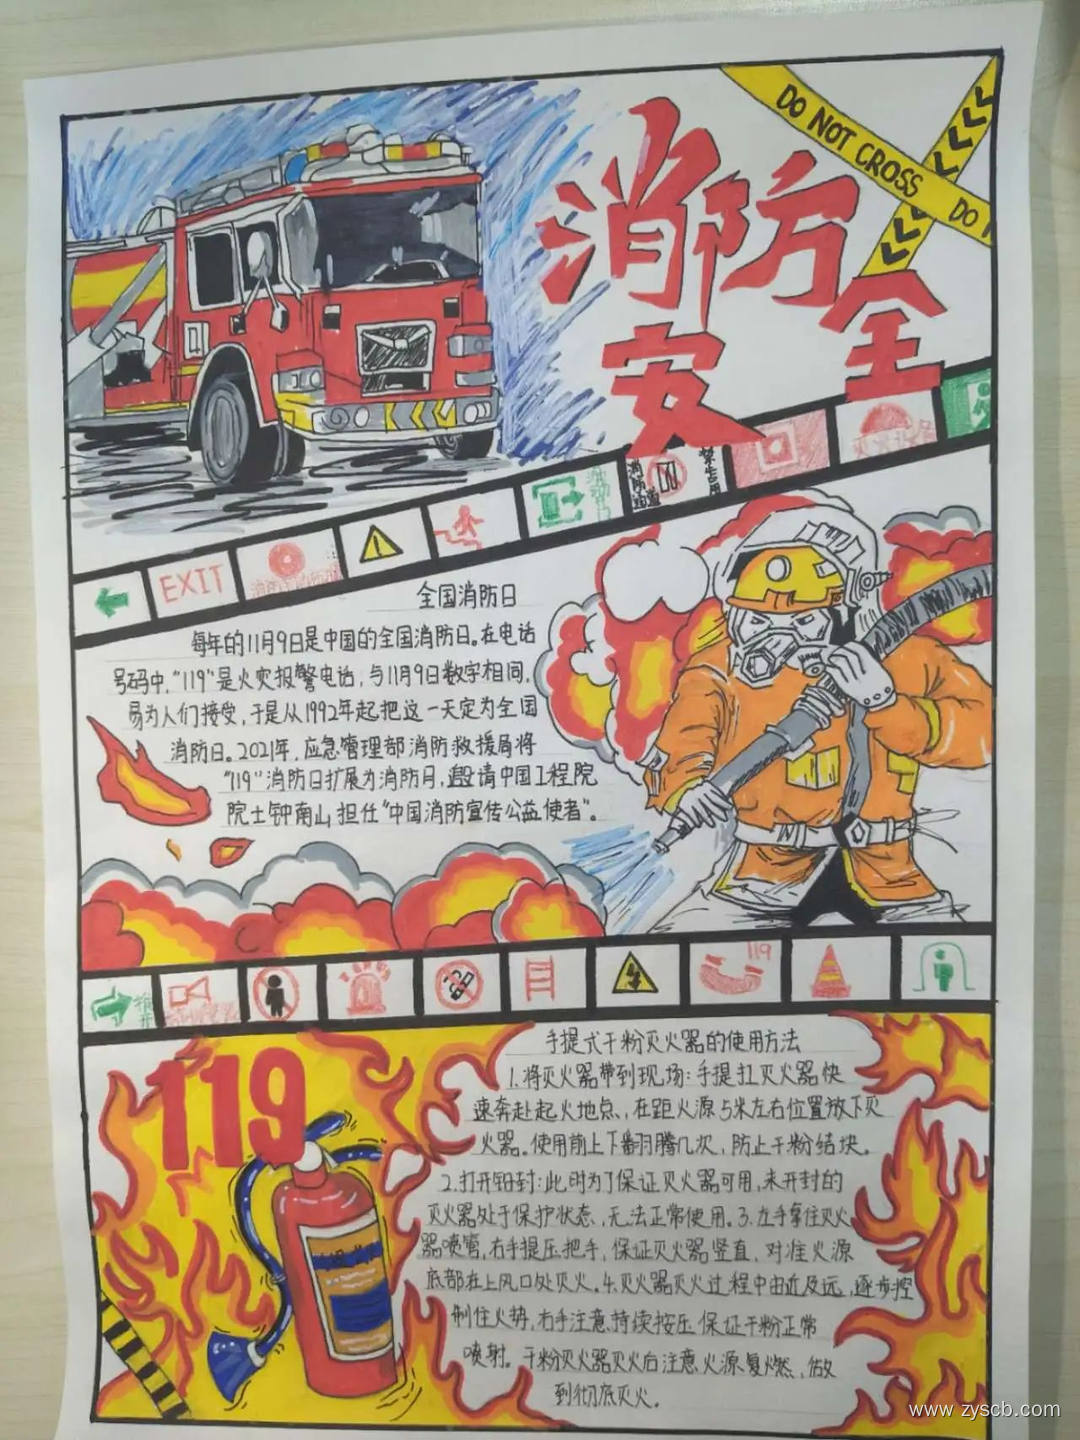 DO NOT CROSS DO N
消防
安全
EXIT
全国消防日
每年的11月9日是中国的全国消防日。在电话
号码中，"119"是火灾报警电话，与11月9日数字相同，
易为人们接受，于是从1992年起把这一天定为全国
消防日。2021年，应急管理部消防救援局将
"119"消防日扩展为消防月，邀请中国工程院
院士钟南山担任"中国消防宣传公益使者"。
119
119
手提式干粉灭火器的使用方法
1.将灭火器带到现场：手提扛灭火器快
速奔赴起火地点，在距火源5米左右位置放下灭
火器。使用前上下翻腾几次，防止干粉结块。
2.打开铅封：此时为了保证灭火器可用，未开封的
灭火器处于保护状态，无法正常使用。3.左手拿住灭火
器喷管，右手提压把手，保证灭火器竖直，对准火源
底部在上风口处灭火。4.灭火器灭火过程中由近及远，逐步控
制住火势，右手注意持续按压保证干粉正常
喷射。干粉灭火器灭火后注意火源复燃，做
到彻底灭火。
www.zyscb.com